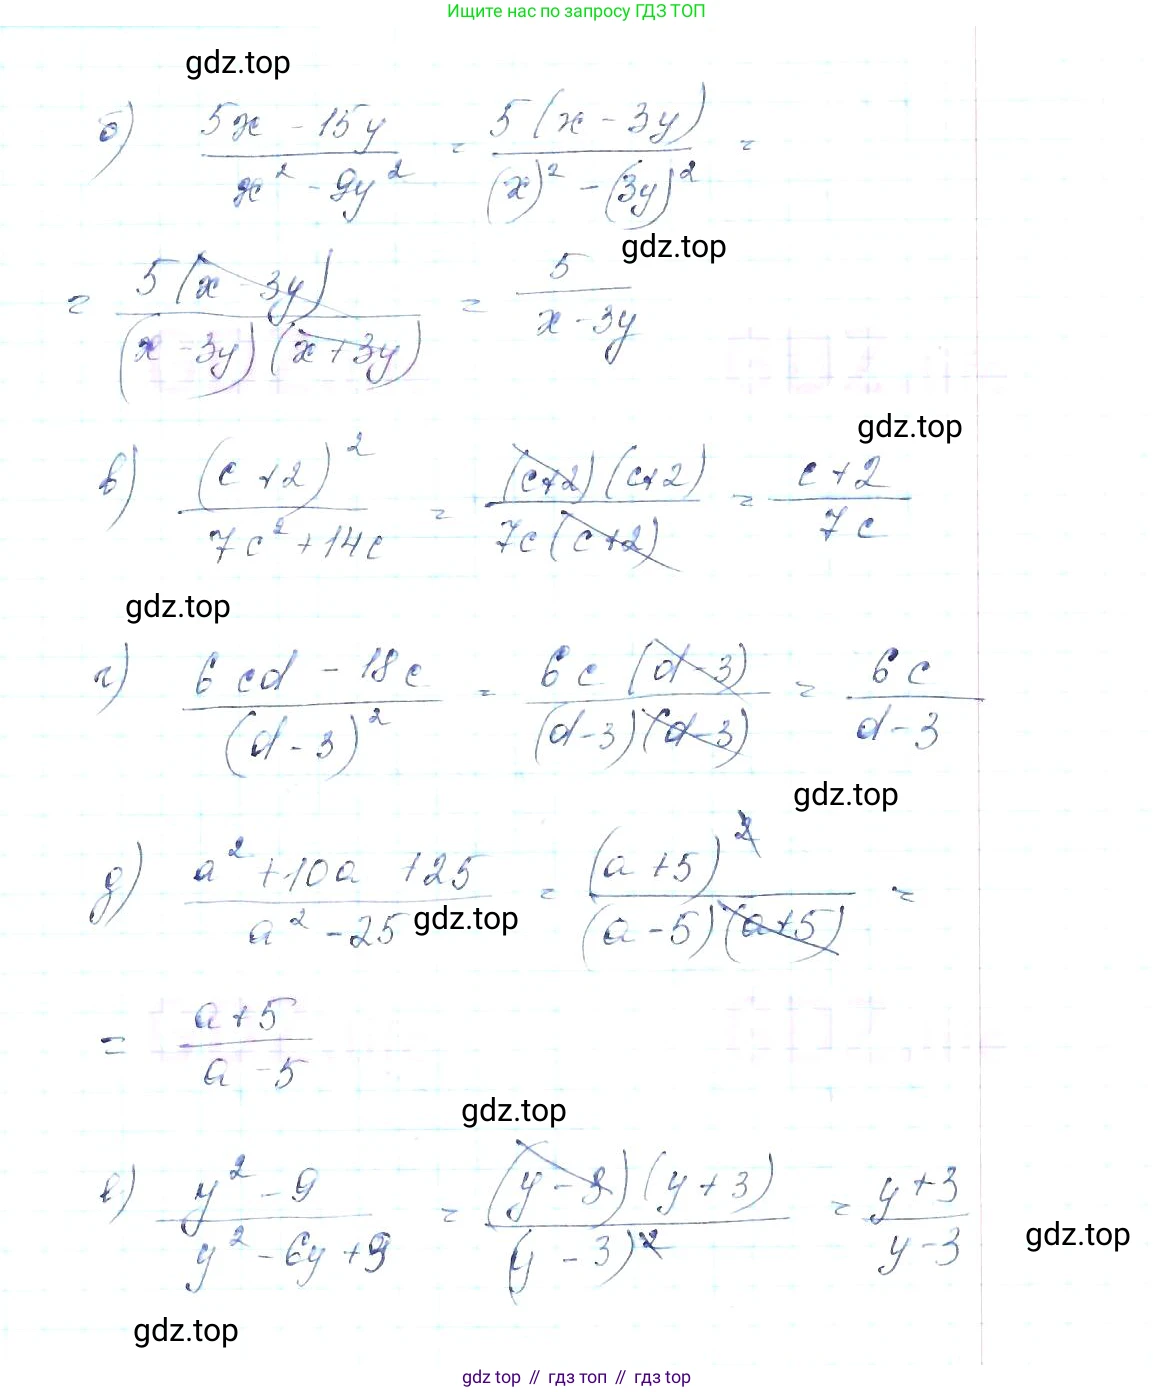 Ищите нас по запросу ГДЗ ТОП
gdz.top
б) (5x - 15y)/(x² - 9y²) = (5(x - 3y))/((x)² - (3y)²) =
gdz.top
= (5(x - 3y))/((x - 3y)(x + 3y)) = 5/(x - 3y)
gdz.top
в) (c + 2)²/(7c² + 14c) = ((c+2)(c+2))/(7c(c+2)) = (c + 2)/(7c)
gdz.top
г) (6cd - 18c)/(d - 3)² = (6c(d - 3))/((d - 3)(d - 3)) = 6c/(d - 3)
gdz.top
д) (a² + 10a + 25)/(a² - 25) = (a + 5)²/((a - 5)(a + 5)) =
gdz.top
= (a + 5)/(a - 5)
gdz.top
е) (y² - 9)/(y² - 6y + 9) = ((y - 3)(y + 3))/(y - 3)² = (y + 3)/(y - 3)
gdz.top
gdz.top
gdz top // гдз топ // гдз top